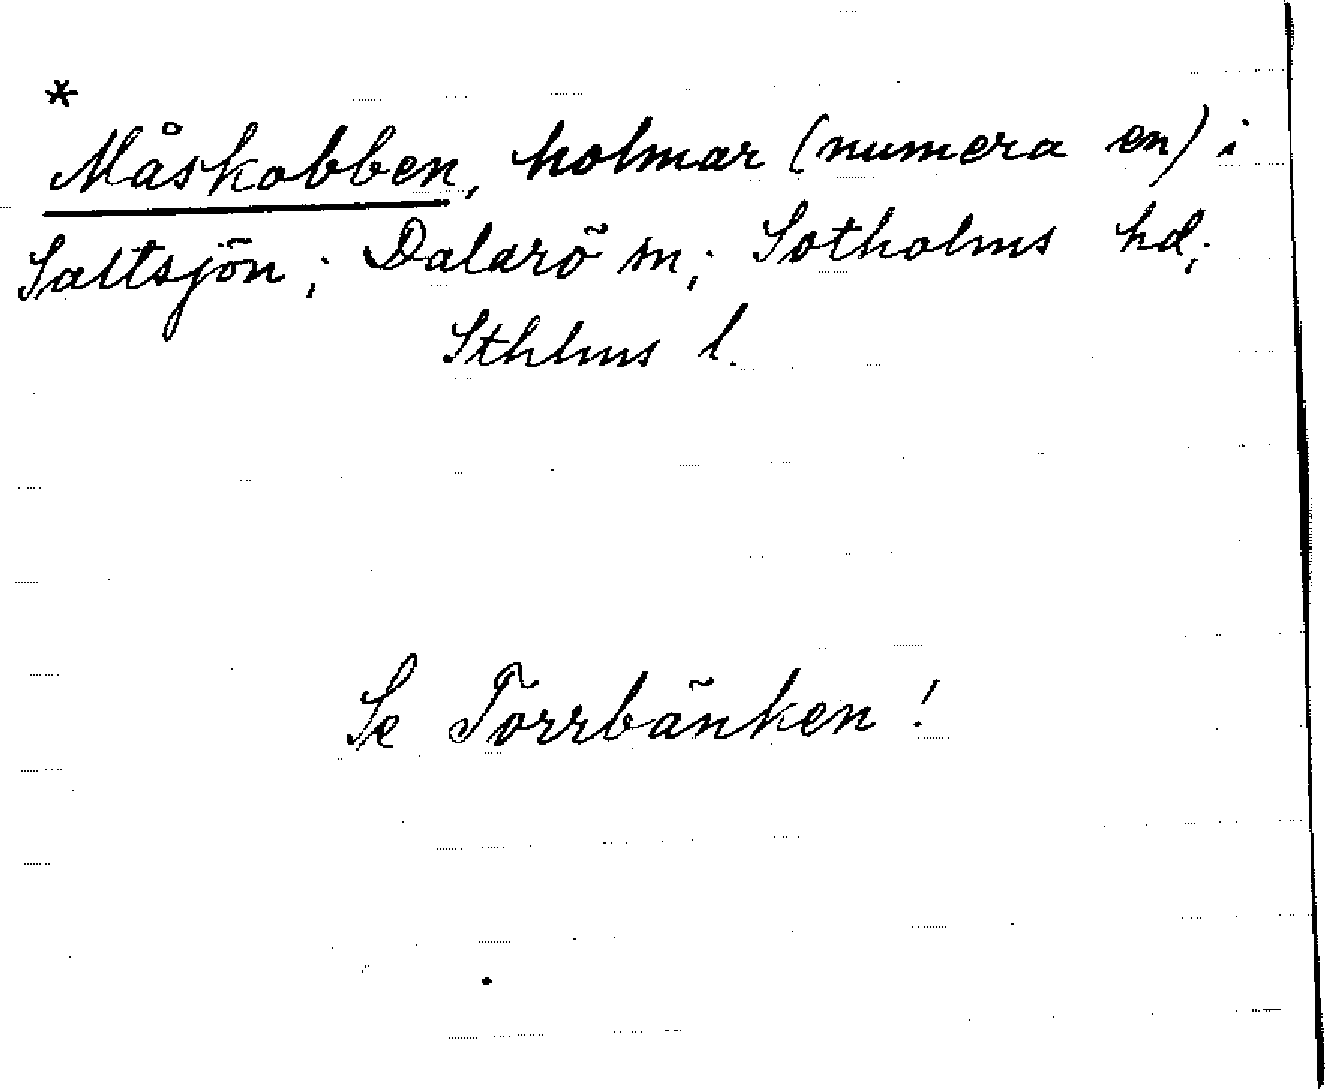 *
Måskobben, holmar (numera en) i
Saltsjön; Dalarö sn; Sotholms hd;
Sthlms l.
Se Torrbänken!